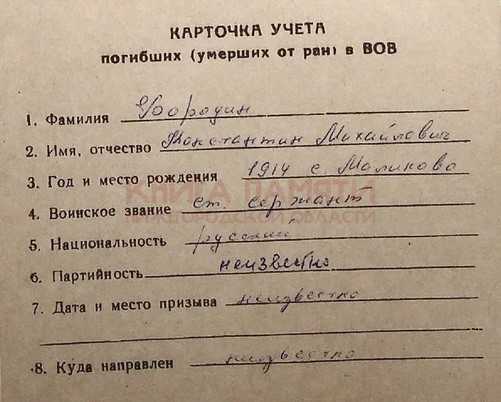 КАРТОЧКА УЧЕТА
погибших (умерших от ран) в ВОВ
1. Фамилия Бородин
2. Имя, отчество Константин Михайлович
3. Год и место рождения 1914 с. Маликово
КНИГА ПАМЯТИ
4. Воинское звание ст. сержант
НИЖЕГОРОДСКОЙ ОБЛАСТИ
5. Национальность русский
6. Партийность неизвестно
7. Дата и место призыва неизвестно
8. Куда направлен неизвестно